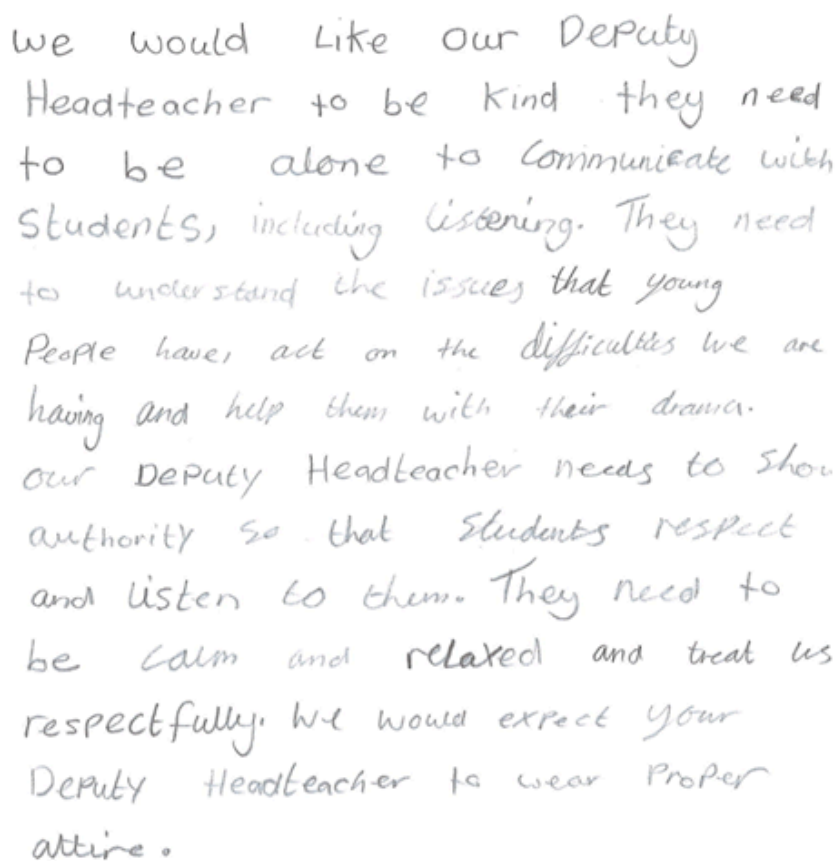 we would Like our Deputy
Headteacher to be kind they need
to be alone to Communicate with
Students, including listening. They need
to understand the issues that young
People have, act on the difficulties we are
having and help them with their drama.
our Deputy Headteacher needs to show
authority so that Students respect
and listen to them. They need to
be calm and relaxed and treat us
respectfully. We would expect your
Deputy Headteacher to wear Proper
attire.